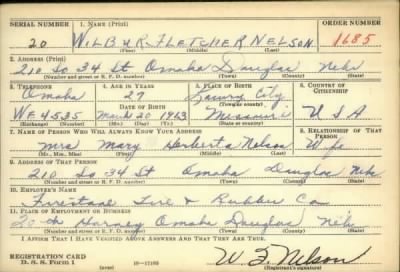 SERIAL NUMBER 1. NAME (Print) ORDER NUMBER
20 WILBUR FLETCHER NELSON 1685
(First) (Middle) (Last)
2. ADDRESS (Print)
210 So 34 St Omaha Douglas Neb
(Number and street or R. F. D. number) (Town) (County) (State)
3. TELEPHONE 4. AGE IN YEARS 5. PLACE OF BIRTH 6. COUNTRY OF CITIZENSHIP
Omaha 27 City
DATE OF BIRTH (Town or county)
We 4535 Mar 20 1913 Missouri U S A
(Exchange) (No.) (Mo.) (Day) (Yr.) (State or country)
7. NAME OF PERSON WHO WILL ALWAYS KNOW YOUR ADDRESS 8. RELATIONSHIP OF THAT PERSON
Mrs Mary Herberta Nelson Wife
(Mr., Mrs., Miss) (First) (Middle) (Last)
9. ADDRESS OF THAT PERSON
210 So 34 St Omaha Douglas Neb
(Number and street or R. F. D. number) (Town) (County) (State)
10. EMPLOYER'S NAME
Firestone Tire & Rubber Co
11. PLACE OF EMPLOYMENT OR BUSINESS
20th Harney Omaha Douglas Neb
(Number and street or R. F. D. number) (Town) (County) (State)
I AFFIRM THAT I HAVE VERIFIED ABOVE ANSWERS AND THAT THEY ARE TRUE.
REGISTRATION CARD
D. S. S. Form 1 W F Nelson
(Registrant's signature)